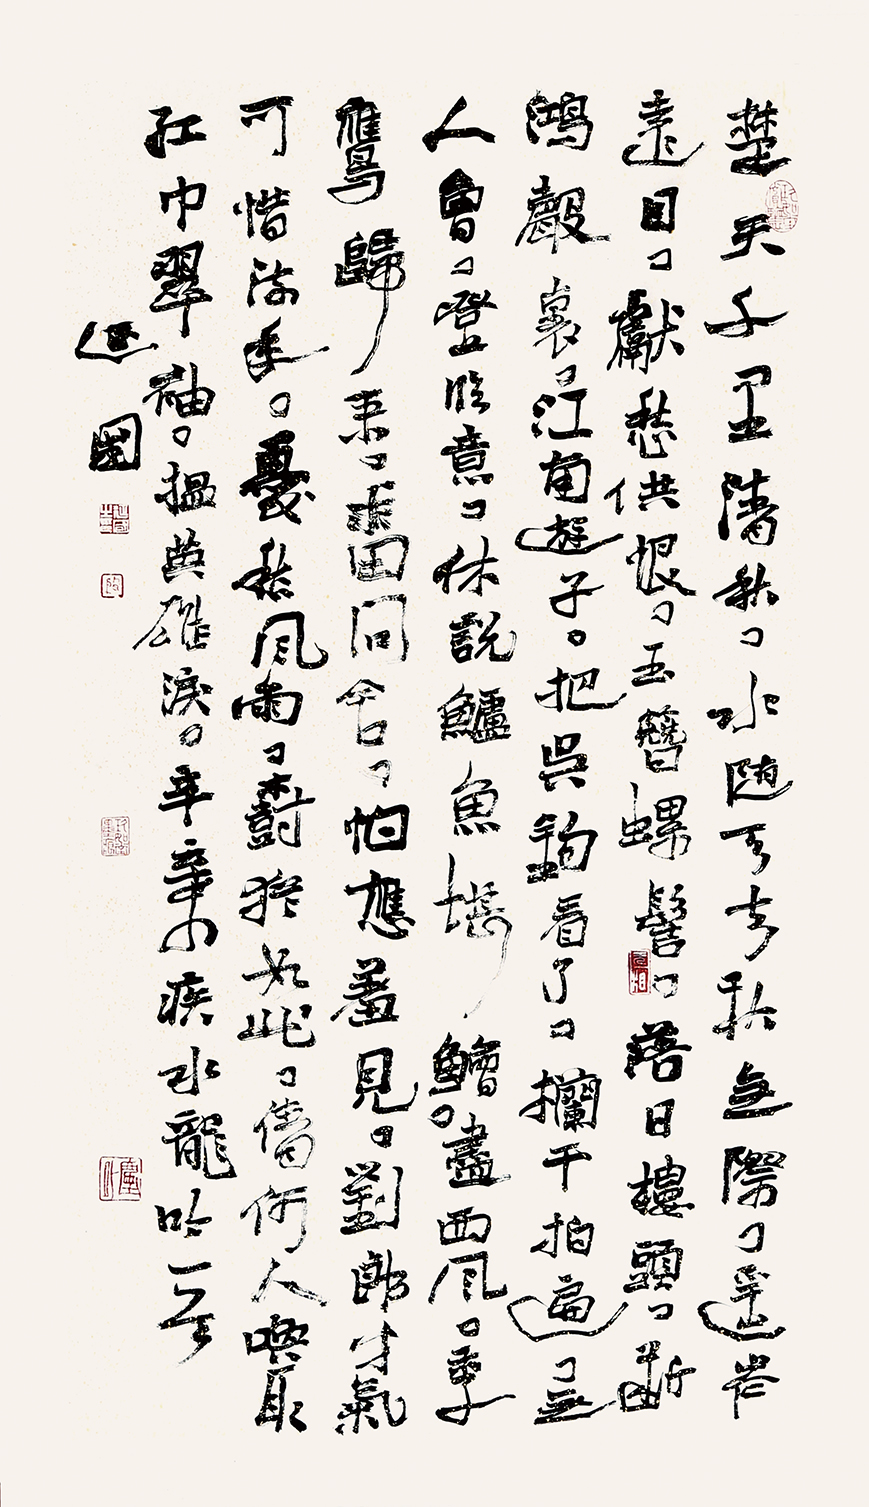 楚天千里清秋、水随天去秋無際、遥岑
遠目、獻愁供恨、玉簪螺髻、落日樓頭、斷
鴻聲裏、江南遊子。把吳鉤看了、攔干拍遍、無
人會、登臨意、休說鱸魚堪鱠。盡西風、季
鷹歸來、求田問舍、怕應羞見。劉郎才氣
可惜流年。憂愁風雨、樹猶如此、倩何人喚取
紅巾翠袖。搵英雄淚。辛棄疾水龍吟一首
國